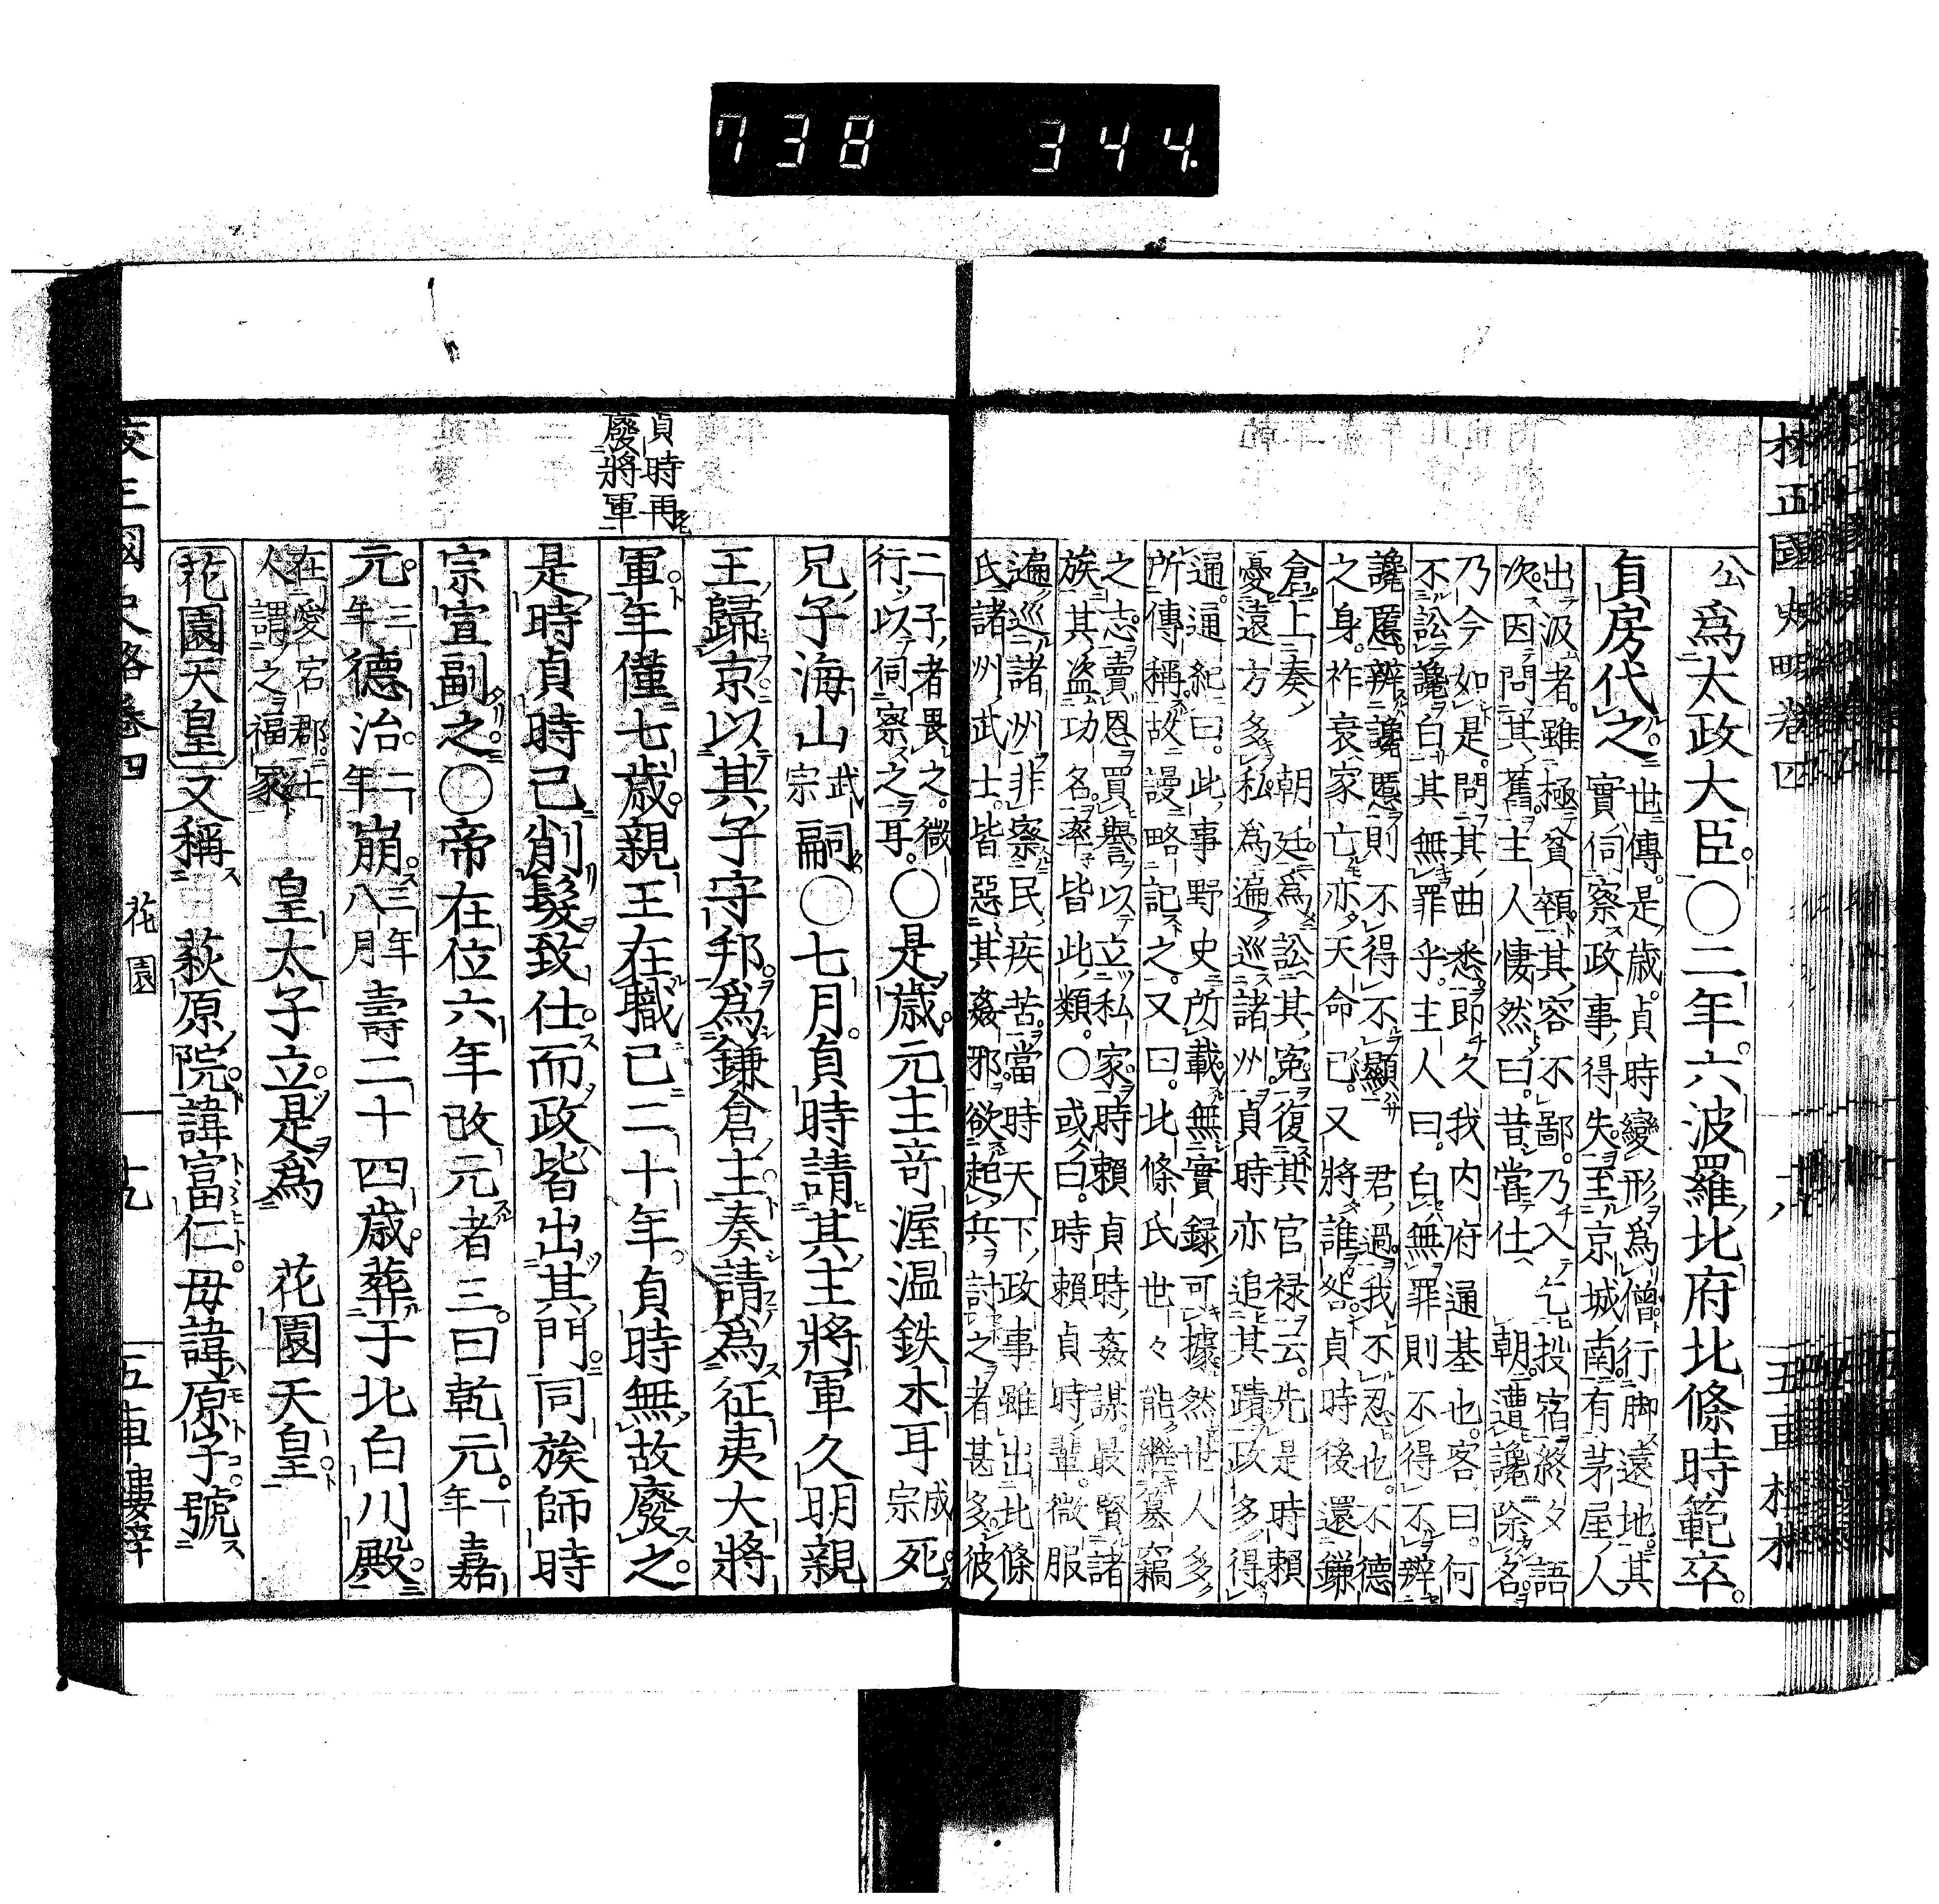 738 344.
校正國史略卷四
五車樓梓
公爲太政大臣。〇二年。六波羅北府北條時範卒。
貞房代之。
世傳。是歲。貞時變形爲僧。行脚遠地。其
實伺察政事得失。至京城南。有茅屋人
出汲者。雖極貧顇。其容不鄙。乃入乞投宿。終夕語
次。因問其舊。主人悽然曰。昔當仕朝。遭讒除名。
乃今如是。問其曲悉。即久我内府通基也。客曰。何
不訟讒白其無罪乎。主人曰。白無罪則不得不辨
讒慝。辨讒慝則不得不顯君過。我不忍也。不德
之身。祚衰家亡。亦天命已。又將誰咎。貞時後還鎌
倉。上奏朝廷。爲訟其冤。復其官禄云。先是時賴
憂遠方多私。爲遍巡諸州。貞時亦追其蹟。政多得
通。通紀曰。此事野史所載。無實録可據。然世人多
所傳稱。故謾略記之。又曰。北條氏世々能繼墓竊
之志。賣恩買譽。以立私家。時賴貞時。姦謀最賢。諸
族其盗功名。率皆此類。〇或曰。時賴貞時輩。微服
遍巡諸州。非察民疾苦。當時天下政事雖出北條
氏。諸州武士。皆惡其姦邪。欲起兵討之者甚多。彼
二子者畏之。微
行以伺察之耳。
〇是歲。元主竒渥温鉄木耳成宗死。
兄子海山武宗嗣。〇七月。貞時請其主將軍久明親
王歸京。以其子守邦。爲鎌倉主。奏請爲征夷大將
軍。年僅七歲。親王在職已二十年。貞時無故廢之。
貞時再
廢將軍
是時貞時已削髮致仕。而政皆出其門。同族師時
宗宣副之。〇帝在位六年。改元者三。曰乾元。一年嘉
元。三年德治。二年崩。三年八月壽二十四歲。葬于北白川殿。
在愛宕郡。土
人謂之福家
皇太子立。是爲花園天皇。
花園天皇又稱萩原院。諱富仁。母諱原子。號
校正國史略卷四
花園
十九
五車樓梓